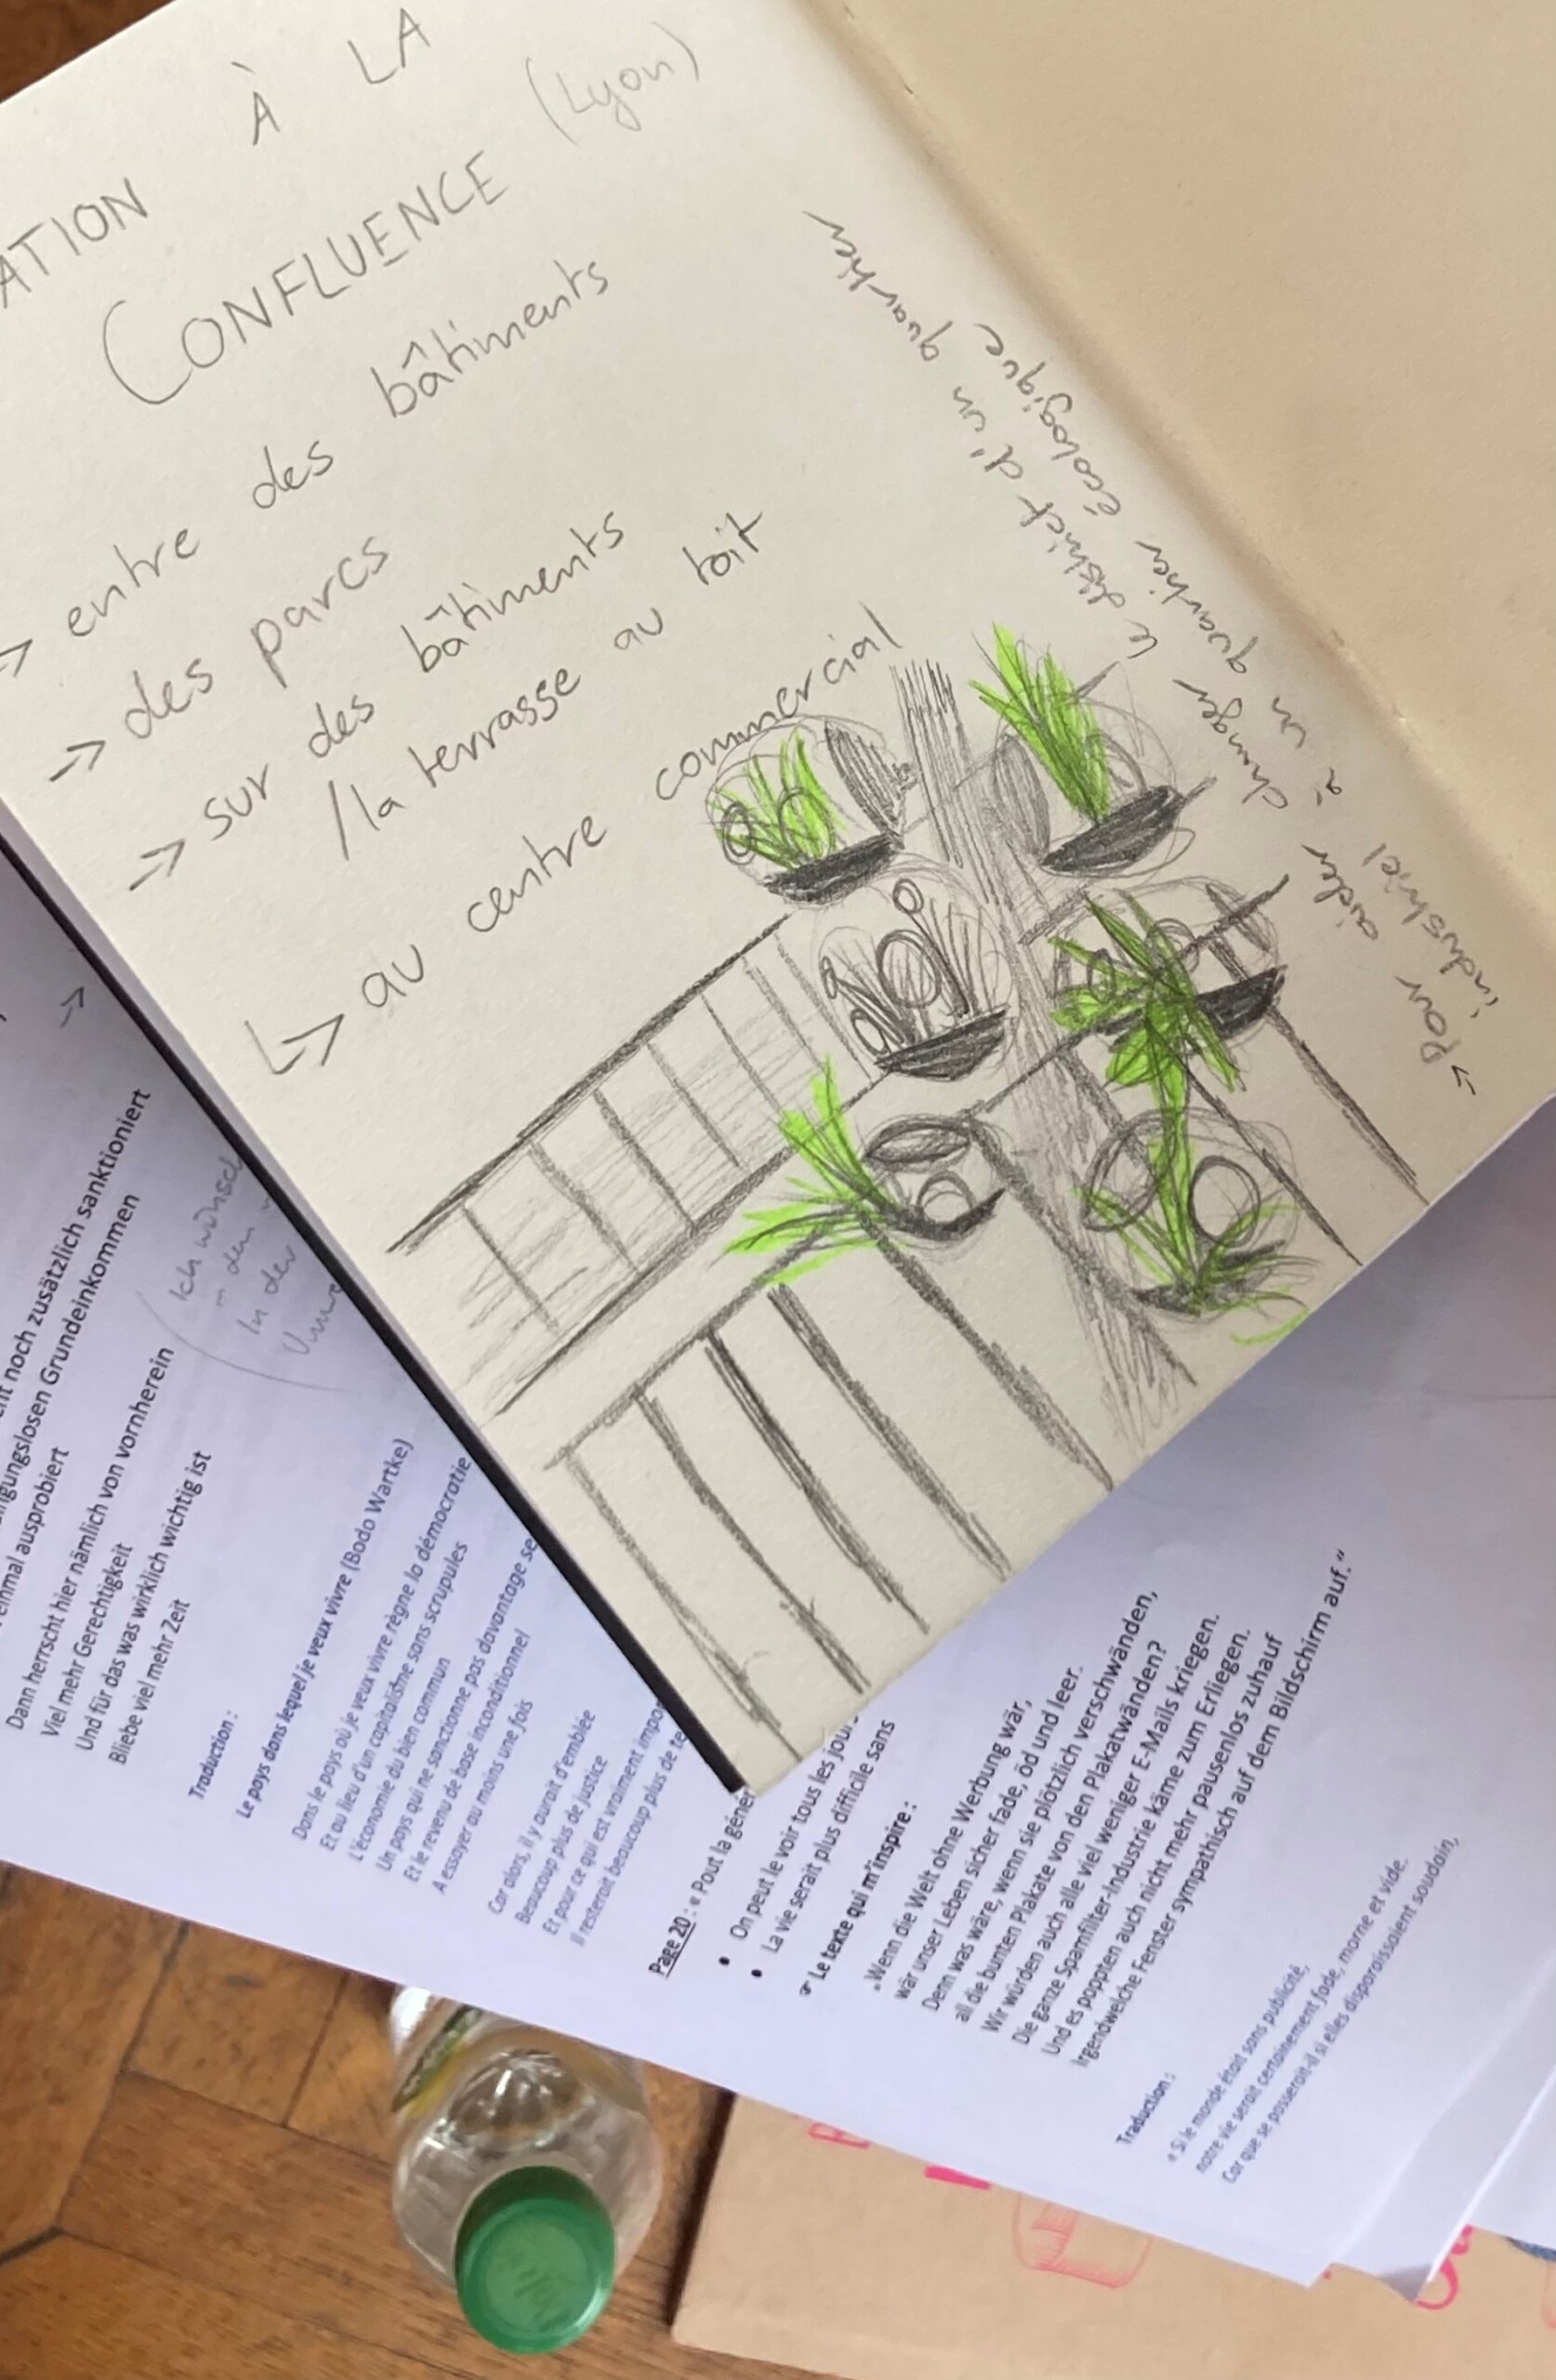 ATION À LA
CONFLUENCE (Lyon)
→ entre des bâtiments
→ des parcs
→ sur des bâtiments
/la terrasse au toit
↳ au centre commercial
→ Pour aider à changer le district d'un quartier
industriel à un quartier écologique
noch zusätzlich sanktioniert
ngungslosen Grundeinkommen
einmal ausprobiert
Dann herrscht hier nämlich von vornherein
Viel mehr Gerechtigkeit
Und für das was wirklich wichtig ist
Bliebe viel mehr Zeit
(Ich wünsch
in dem
In der
Traduction :
Le pays dans lequel je veux vivre (Bodo Wartke)
Dans le pays où je veux vivre règne la démocratie
Et au lieu d'un capitalisme sans scrupules
L'économie du bien commun
Un pays qui ne sanctionne pas davantage se
Et le revenu de base inconditionnel
A essayer au moins une fois
Car alors, il y aurait d'emblée
Beaucoup plus de justice
Et pour ce qui est vraiment impor
Il resterait beaucoup plus de te
Page 20 : « Pout la génér
• On peut le voir tous les jour
• La vie serait plus difficile sans
☞ Le texte qui m'inspire :
„Wenn die Welt ohne Werbung wär,
wär unser Leben sicher fade, öd und leer.
Denn was wäre, wenn sie plötzlich verschwänden,
all die bunten Plakate von den Plakatwänden?
Wir würden auch alle viel weniger E-Mails kriegen.
Die ganze Spamfilter-Industrie käme zum Erliegen.
Und es poppten auch nicht mehr pausenlos zuhauf
Irgendwelche Fenster sympathisch auf dem Bildschirm auf.“
Traduction :
« Si le monde était sans publicité,
notre vie serait certainement fade, morne et vide.
Car que se passerait-il si elles disparaissaient soudain,